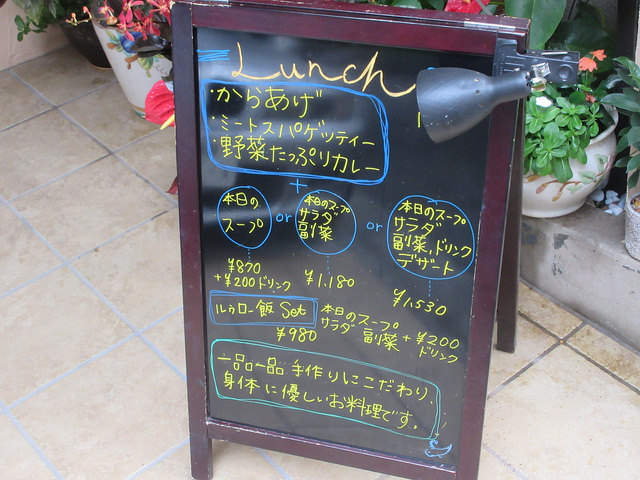 Lunch
・からあげ
・ミートスパゲッティー
・野菜たっぷりカレー
+
本日の
スープ
or
本日のスープ
サラダ
副菜
or
本日のスープ
サラダ
副菜,ドリンク
デザート
¥870
+¥200ドリンク
¥1,180
¥1,530
ルゥロー飯 Set
¥980
本日のスープ
サラダ 副菜
+¥200
ドリンク
一品一品 手作りにこだわり、
身体に優しいお料理です。